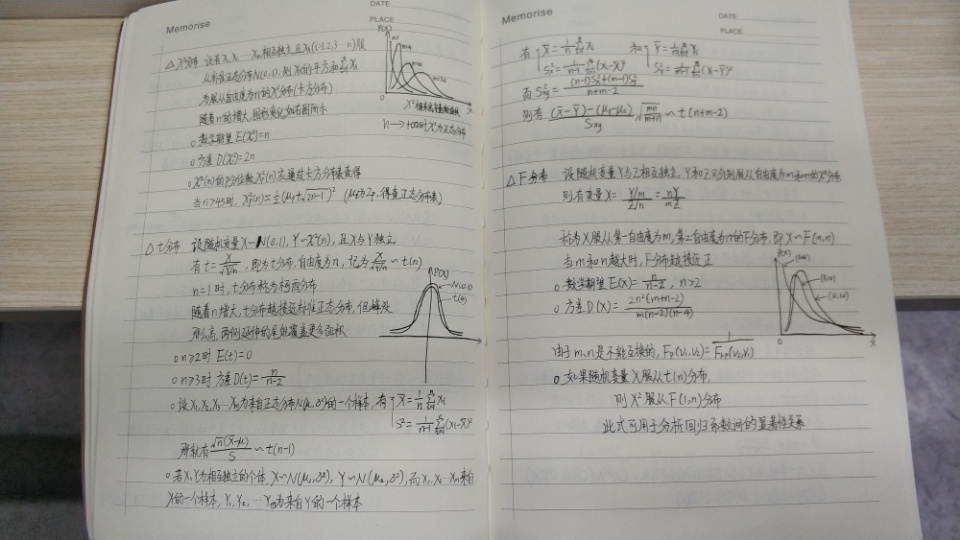 Memorise
DATE
PLACE
△ χ²分布 设有X₁, X₂, … Xₙ相互独立,且Xᵢ(i=1,2,3…n)服
从标准正态分布N(0,1),则Xᵢ的平方和
为服从自由度为n的χ²分布(卡方分布)
随着n的增大,图形变化如右图所示
P(X)
n→+∞时χ²为正态分布
○ 数学期望 E(χ²)=n
○ 方差 D(χ²)=2n
○ χ²(n)的P分位数χ²ₚ(n)求通过卡方分布表查得
当n>45时,χ²ₚ(n)≈½(μₚ+√2n-1)² (μₚ为Zₚ,得查正态分布表)
△ t分布 设随机变量X~N(0,1), Y~χ²(n), 且X与Y独立
有 t=X/√Y/n, 即为t分布,自由度为n,记为X/√Y/n ~ t(n)
n=1时,t分布称为柯西分布
随着n增大,t分布越接近标准正态分布,但峰处
那么高,两侧延伸的尾能覆盖更多面积
P(X)
N(0,1)
○ n≥2时 E(t)=0
○ n≥3时 方差D(t)=n/n-2
○ 设X₁,X₂,X₃…Xₙ为来自正态分布N(μ,σ²)的一个样本,有 X̄=1/n Σ Xᵢ
S²=1/n-1 Σ(Xᵢ-X̄)²
那就有 √n(X̄-μ)/S ~ t(n-1)
○ 若X,Y为相互独立的个体,X~N(μ₁,σ²), Y~N(μ₂,σ²),而X₁,X₂…Xₙ来自
X的一个样本,Y₁,Y₂,…Yₘ为来自Y的一个样本
Memorise
DATE
PLACE
有 X̄=1/n Σ Xᵢ 和 Ȳ=1/m Σ Yᵢ
Sₓ²=1/n-1 Σ(Xᵢ-X̄)² Sᵧ²=1/m-1 Σ(Yᵢ-Ȳ)²
而 Sₓᵧ²=(n-1)Sₓ²+(m-1)Sᵧ²/n+m-2
则有 (X̄-Ȳ)-(μ₁-μ₂)/Sₓᵧ √mn/m+n ~ t(n+m-2)
△ F分布 设随机变量Y与Z相互独立,Y和Z又分别服从自由度为m和n的χ²分布
则有变量X= Y/m / Z/n = nY/mZ
称为X服从第一自由度为m,第二自由度为n的F分布,即X~F(m,n)
当m和n越大时,F分布越接近正
○ 数学期望E(X)=n/n-2, n>2
○ 方差D(X)=2n²(m+n-2)/m(n-2)(n-4)
P(X)
X
由于m、n是不能互换的, Fₚ(v₁,v₂)=1/F₁₋ₚ(v₂,v₁)
○ 如果随机变量X服从t(n)分布,
则X²服从F(1,n)分布
此式可用于分析回归系数间的显著性关系